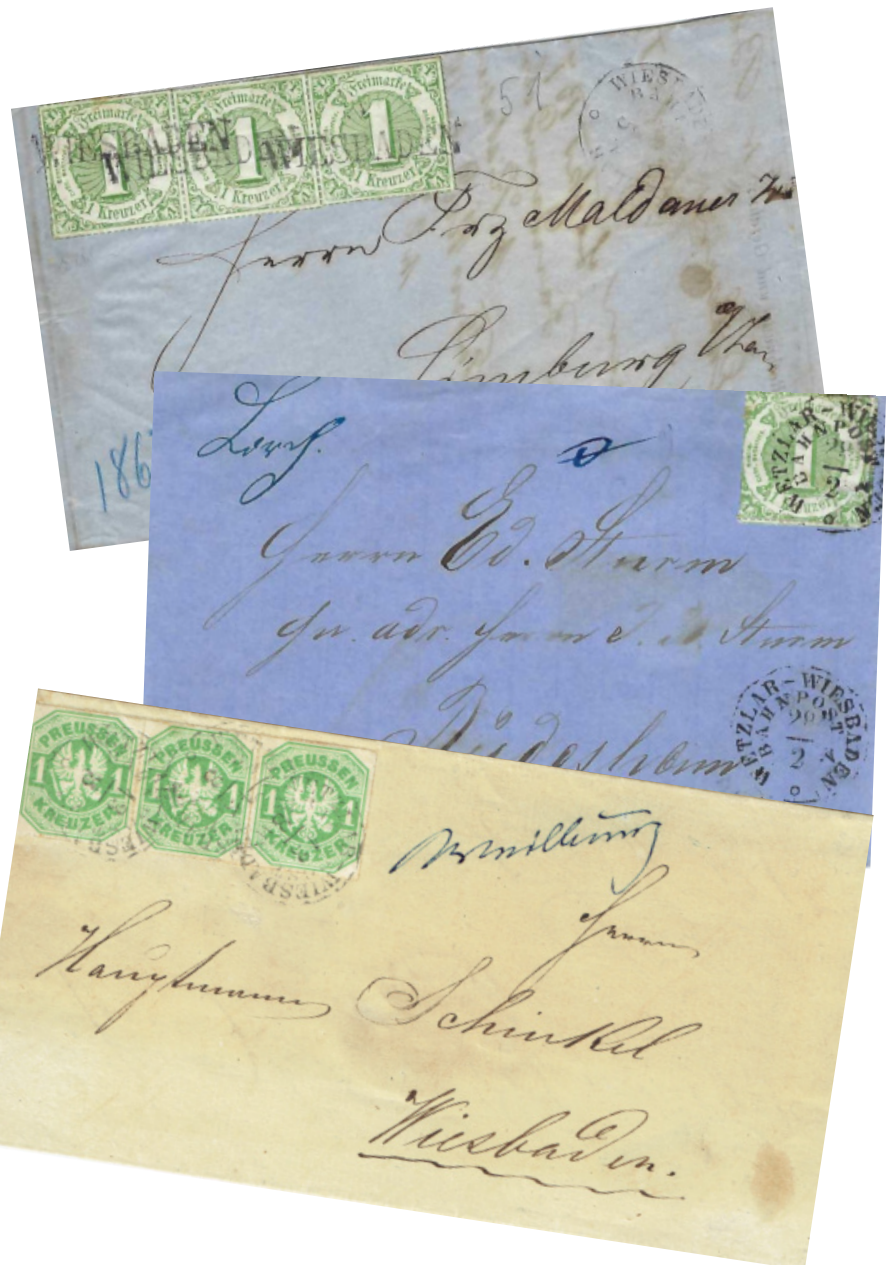 Freimarke Freimarke Freimarke
1 1 1
1 Kreuzer 1 Kreuzer 1 Kreuzer
WIESBADEN WIESBADEN WIESBADEN
51
WIESBADEN
BAHN
Herrn Frz Maldaner
Limburg
186
Lorch.
WETZLAR - WIESBADEN
BAHNPOST
29
2
1
Kreuzer
Herrn Ed. Sturm
Herrn Sturm
Rüdesheim
WETZLAR - WIESBADEN
BAHNPOST
29
2
PREUSSEN PREUSSEN PREUSSEN
1 1 1 1 1 1
KREUZER KREUZER KREUZER
WIESBADEN
Weilburg
Herrn
Hauptmann Schinkel
Wiesbaden.